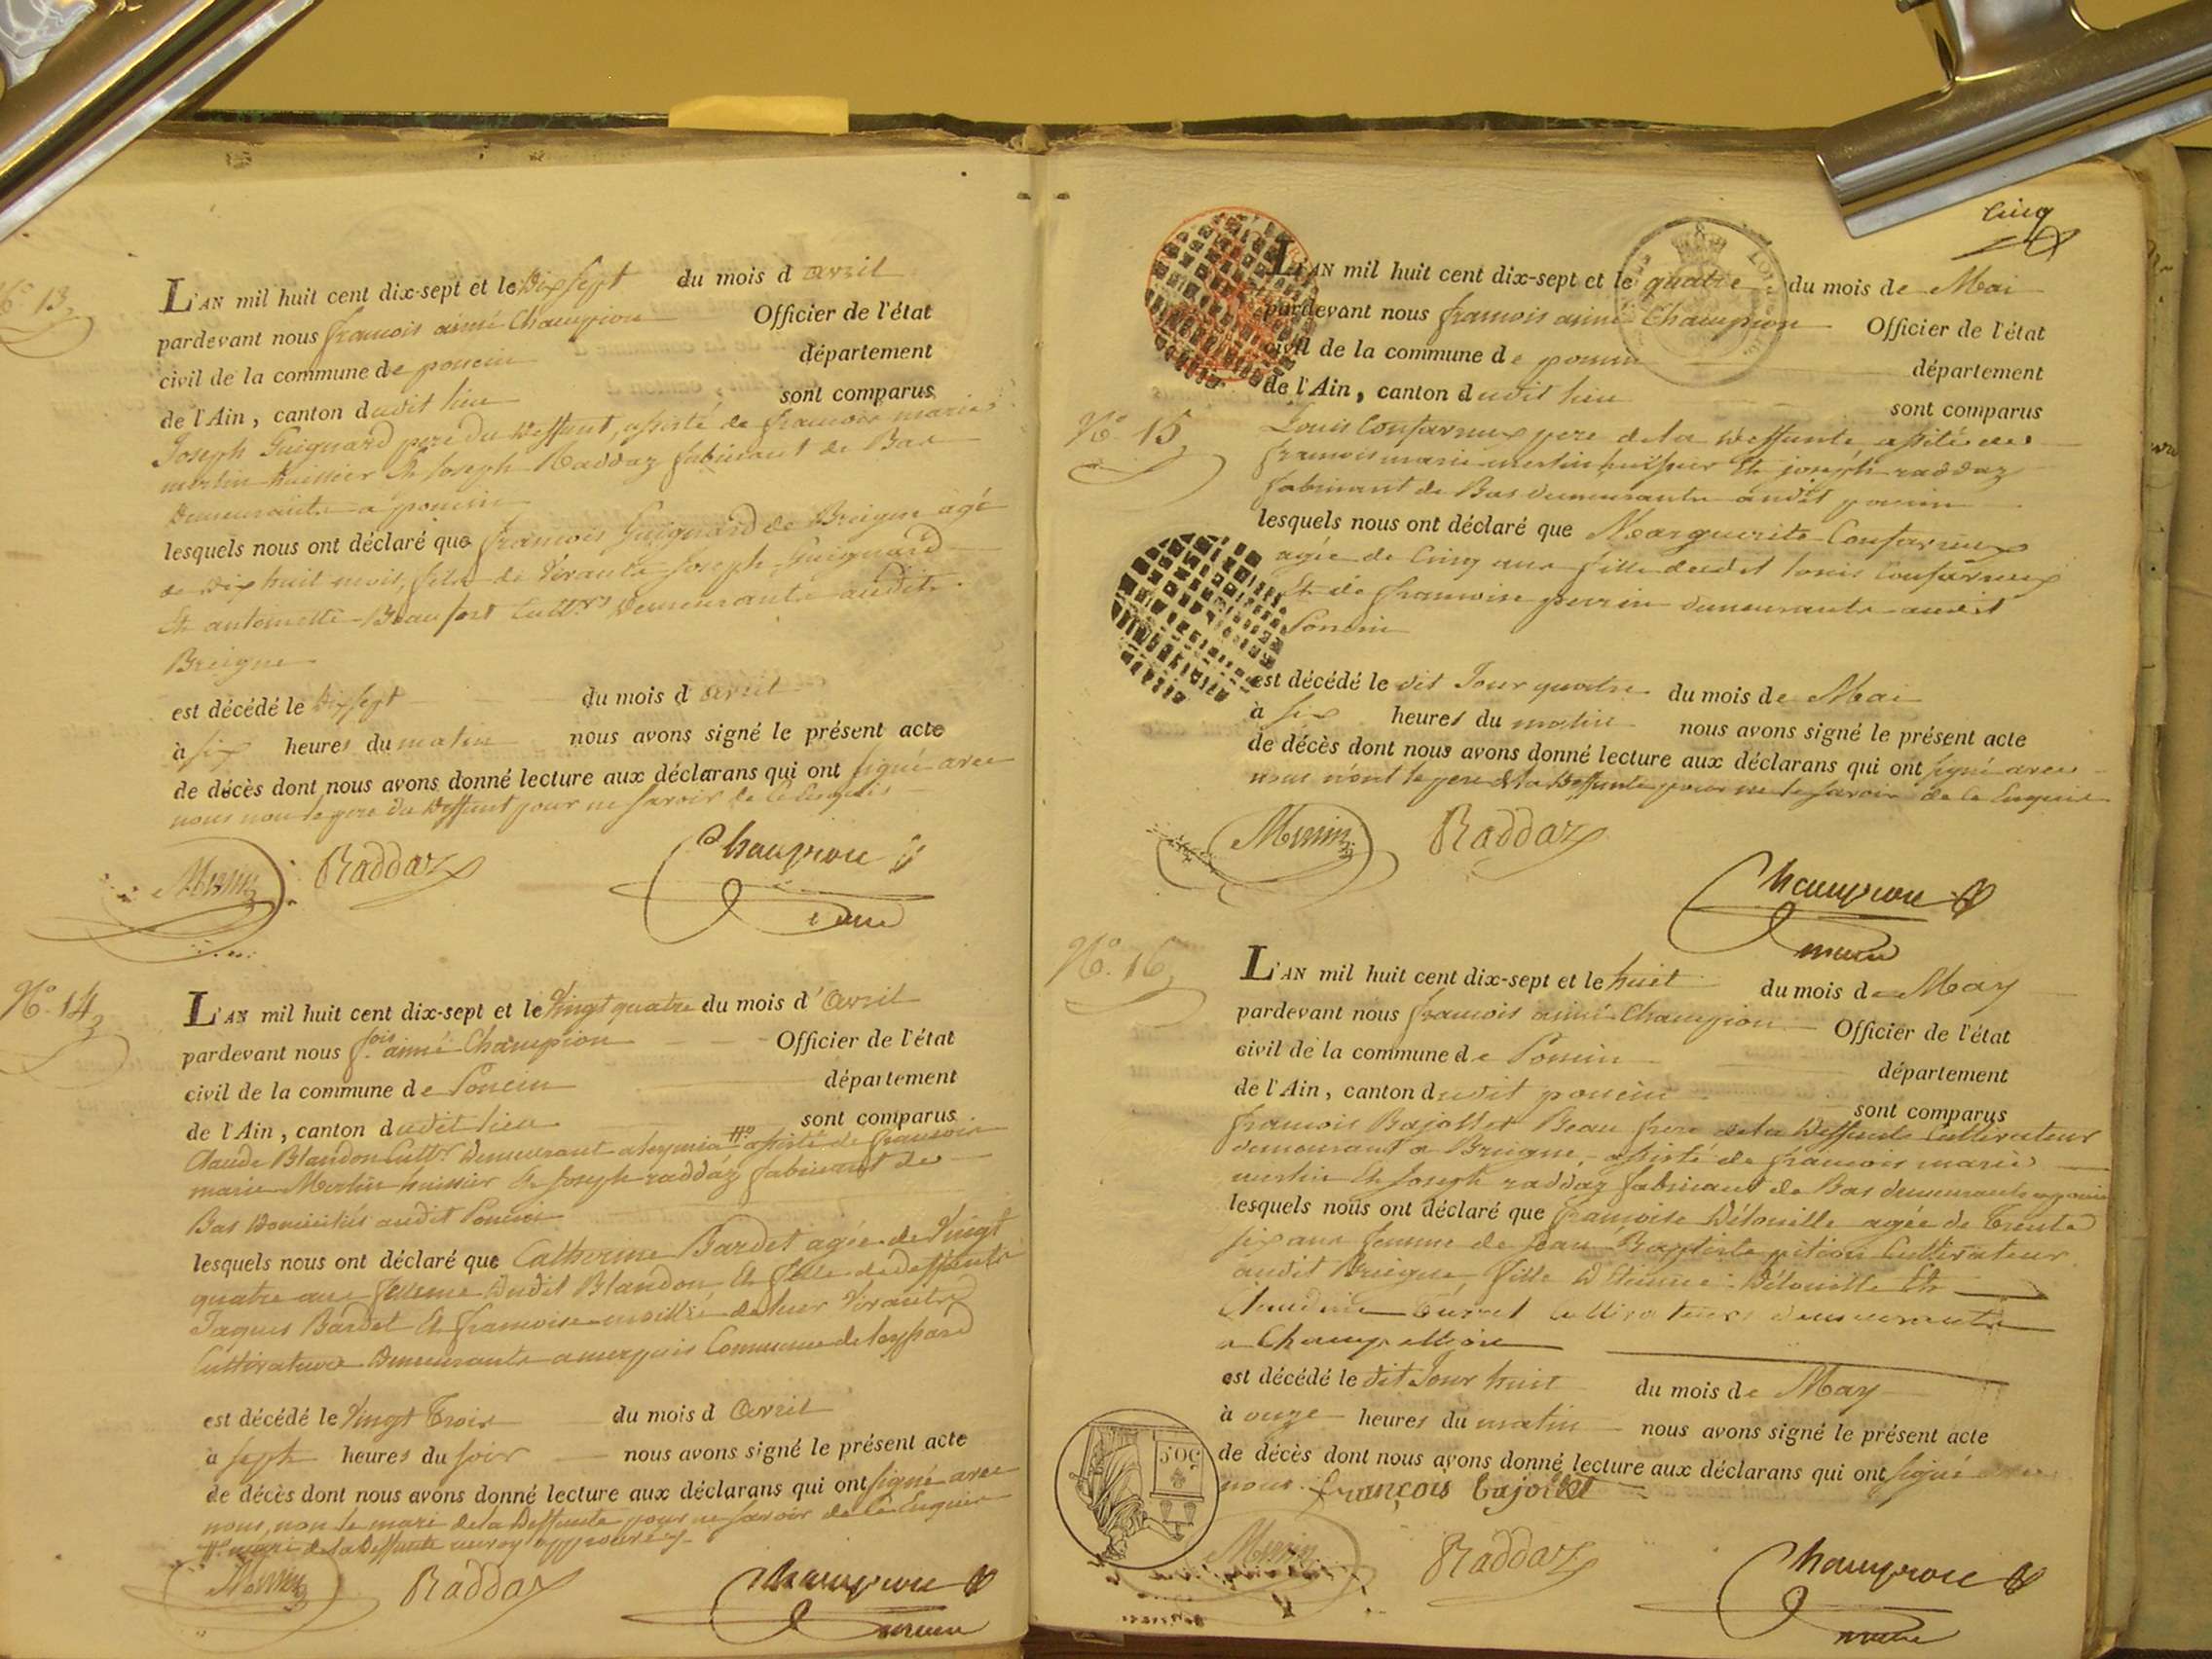 N.o 13,
L'AN mil huit cent dix-sept et le Dix sept du mois d avril
pardevant nous francois aimé Champion Officier de l'état
civil de la commune de poncin département
de l'Ain, canton dudit lieu sont comparus
Joseph Guignard pere du deffunt, assisté de francois marie
merlin huissier Et Joseph Raddaz fabricant de Bas
demeurants a poncin
lesquels nous ont déclaré que francois Guignard de Breigne agé
de Dix huit mois, fils de vivants Joseph Guignard
Et antoinette Beaufort Cultrs demeurants audit
Breigne
est décédé le Dix sept du mois d avril
à six heures du matin nous avons signé le présent acte
de décès dont nous avons donné lecture aux déclarans qui ont signé avec
nous non le pere du deffunt pour ne savoir de ce Enquis
Merlin Raddaz Champion
maire
N.o 14,
L'AN mil huit cent dix-sept et le Vingt quatre du mois d' Avril
pardevant nous fois aimé Champion Officier de l'état
civil de la commune de Poncin département
de l'Ain, canton dudit lieu sont comparus
Claude Blandon Cultr demeurant a leymia # assisté de francois
marie Merlin huissier Et Joseph raddaz fabricant de
Bas Domiciliés audit Poncin
lesquels nous ont déclaré que Catherine Bardet agée de Vingt
quatre ans femme dudit Blandon, Et fille de deffunts
Jaques Bardet Et francoise de leur vivants
Cultivateurs demeurants a Commune de
est décédé le Vingt Trois du mois d Avril
à sept heures du soir nous avons signé le présent acte
de décès dont nous avons donné lecture aux déclarans qui ont signé avec
nous, non le mari de la deffunte pour ne savoir de ce Enquis
# mari de la deffunte renvoy approuvé
Merlin Raddaz Champion
maire
Cinq
L'AN mil huit cent dix-sept et le quatre du mois de Mai
pardevant nous francois aimé Champion Officier de l'état
civil de la commune de poncin département
de l'Ain, canton dudit lieu sont comparus
N.o 15,
Louis Confavreux pere de la deffunte assisté de
francois marie merlin huissier Et joseph raddaz
fabricant de Bas demeurants audit poncin
lesquels nous ont déclaré que Marguerite Confavreux
agée de Cinq ans fille dudit louis Confavreux
Et de francoise perrin demeurants audit
Poncin
est décédé le dit Jour quatre du mois de Mai
à six heures du matin nous avons signé le présent acte
de décès dont nous avons donné lecture aux déclarans qui ont signé avec
nous non le pere de la deffunte pour ne le savoir de ce Enquis
Merlin Raddaz
Champion
maire
N.o 16,
L'AN mil huit cent dix-sept et le huit du mois de May
pardevant nous francois aimé Champion Officier de l'état
civil de la commune de Poncin département
de l'Ain, canton dudit poncin sont comparus
francois Bajollet Beau frere de la deffunte Cultivateur
demeurant a Breigne, assisté de francois marie
merlin Et Joseph raddaz fabricant de Bas demeurants a poncin
lesquels nous ont déclaré que francoise Détouille agée de Trente
six ans femme de Jean Baptiste pition Cultivateur
audit Breigne, fille d'Etienne Détouille Et
Claudine Cultivateurs demeurants
a Champeillon
est décédé le dit Jour huit du mois de May
à onze heures du matin nous avons signé le présent acte
de décès dont nous avons donné lecture aux déclarans qui ont signé avec
nous. françois bajollet
50C
Merlin Raddaz Champion
maire